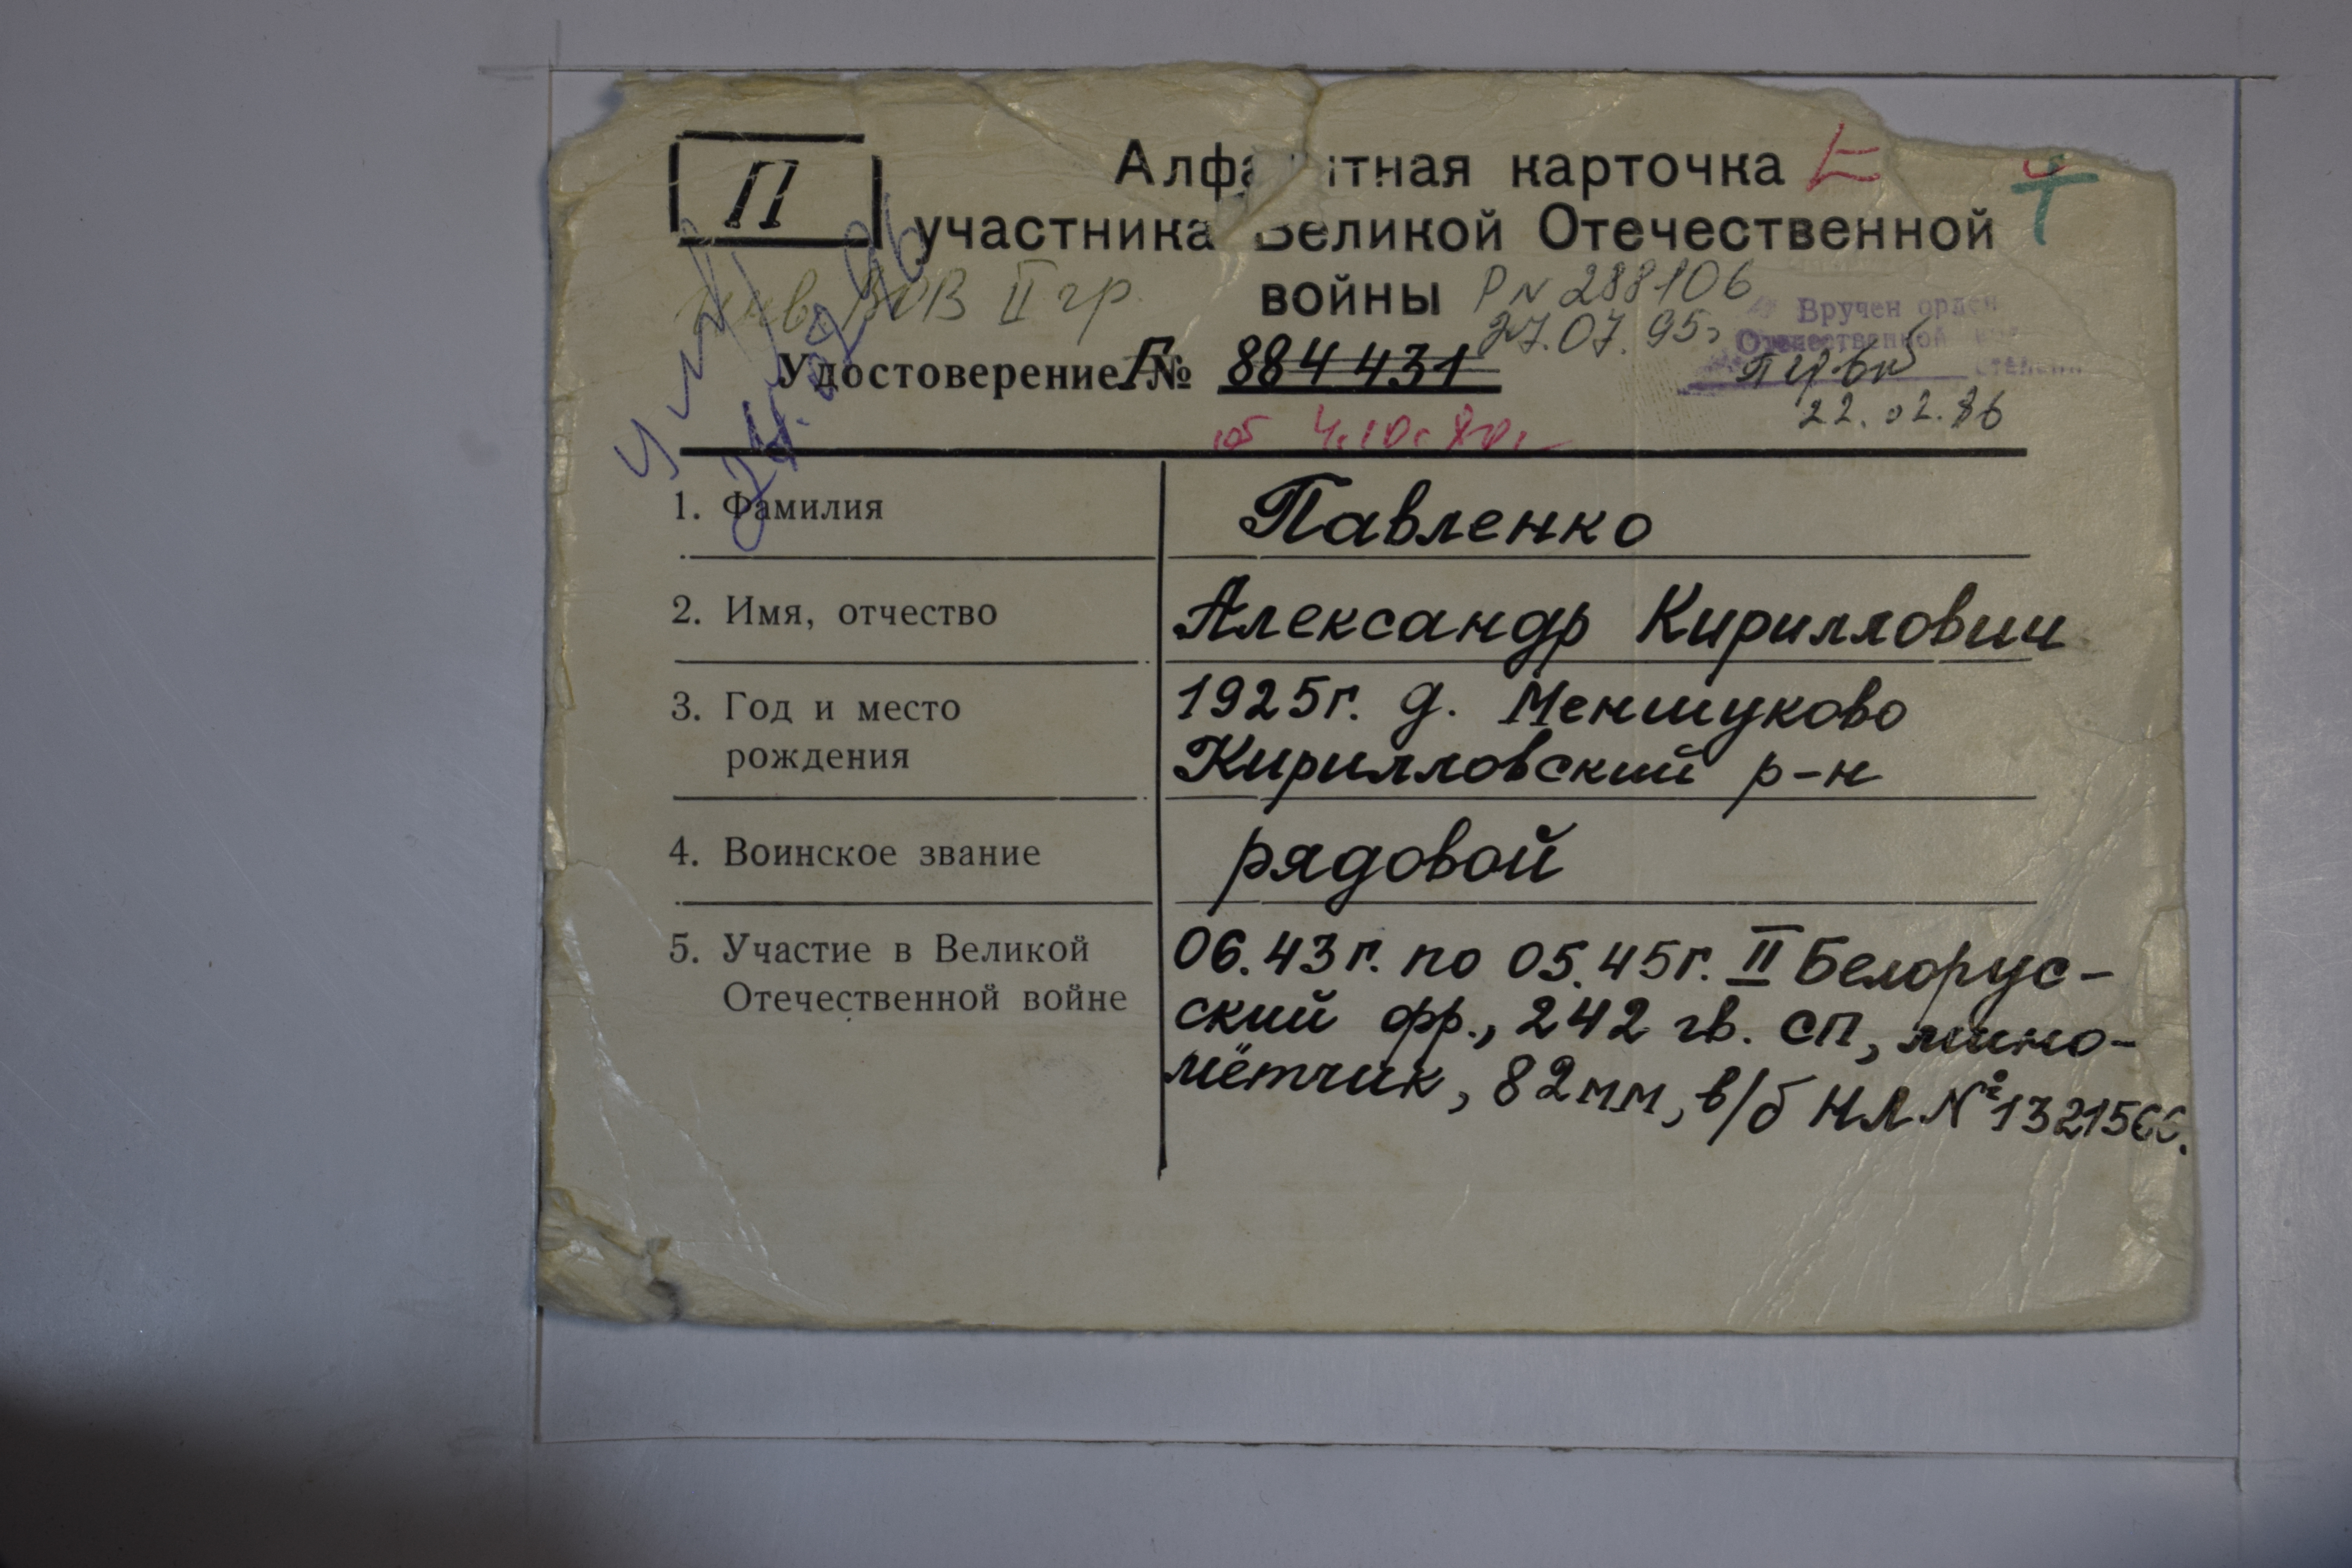 П
Алфа итная карточка
участника Великой Отечественной
войны
Р N 288106
27.07.95г
инв. ВОВ II гр.
Вручен орден
Отечественной
степени
22.02.86
Удостоверение Г № 884431
от 4.10.80г
умер
1. Фамилия
Павленко
2. Имя, отчество
Александр Кириллович
3. Год и место
рождения
1925г. д. Меншуково
Кирилловский р-н
4. Воинское звание
рядовой
5. Участие в Великой
Отечественной войне
06.43г. по 05.45г. II Белорус-
ский фр., 242 гв. СП, мино-
мётчик, 82мм, в/б НЛ №1321566.